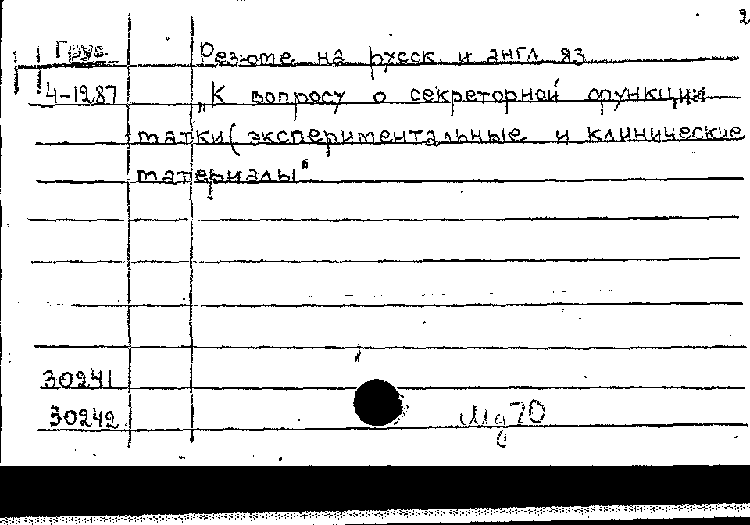 2
Груз. Резюме на русск и англ яз
4-1287 „К вопросу о секреторной функции
матки (экспериментальные и клинические
материалы"
30241
30242
Мд70